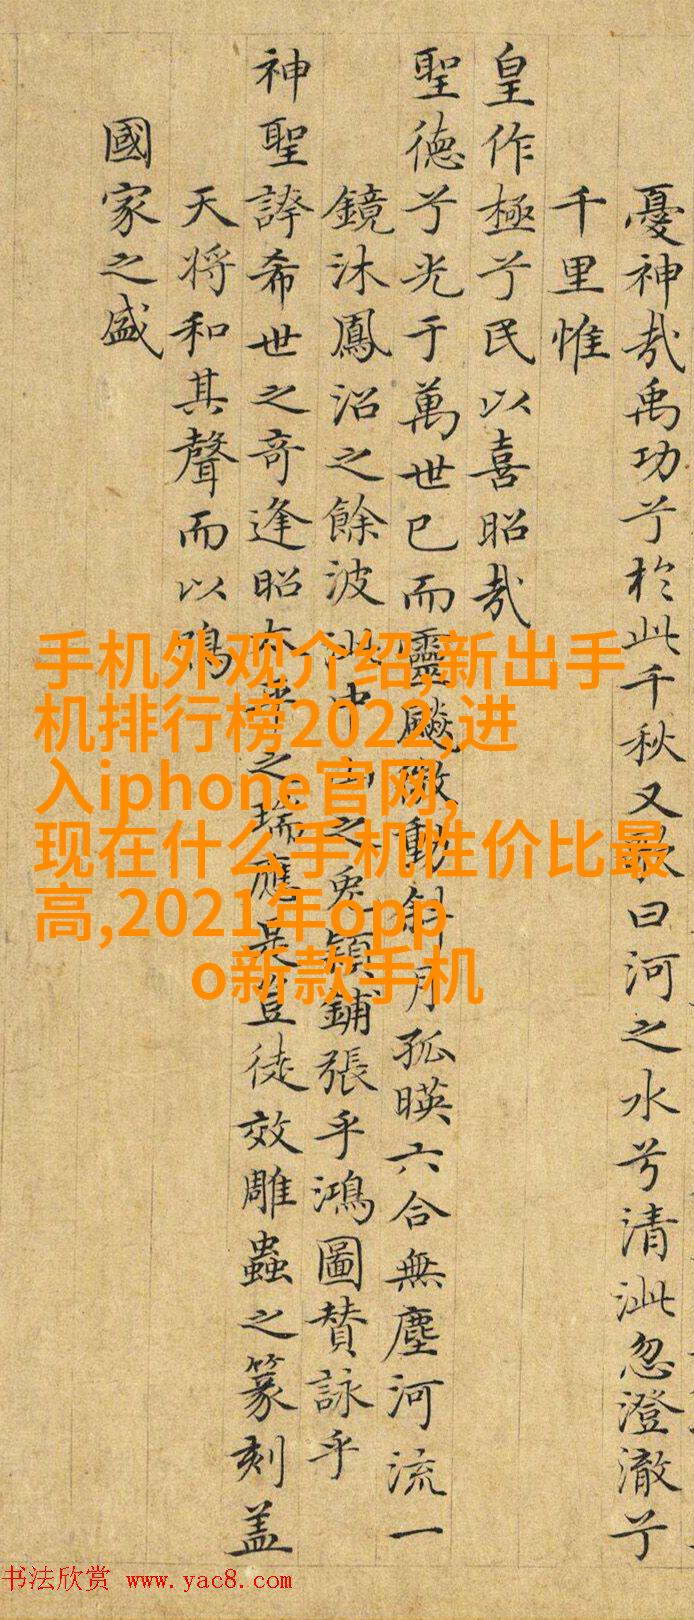 憂神哉禹功兮於此千秋又
曰河之水兮清泚忽澄澈兮
千里惟
皇作極兮民以喜昭哉
聖德兮光于萬世已而靈飈微動斜月孤暎六合無塵河流一
鏡沐鳳沼之餘波
中山之兔穎鋪張乎鴻圖贊詠乎
神聖誇希世之奇逢昭
之瑞應是豈徒效雕蟲之篆刻盖
天将和其聲而以鳴
國家之盛
手机外观介绍,新出手
机排行榜2022,进
入iphone官网,
现在什么手机性价比最
高,2021年opp
o新款手机
书法欣赏 www.yac8.com